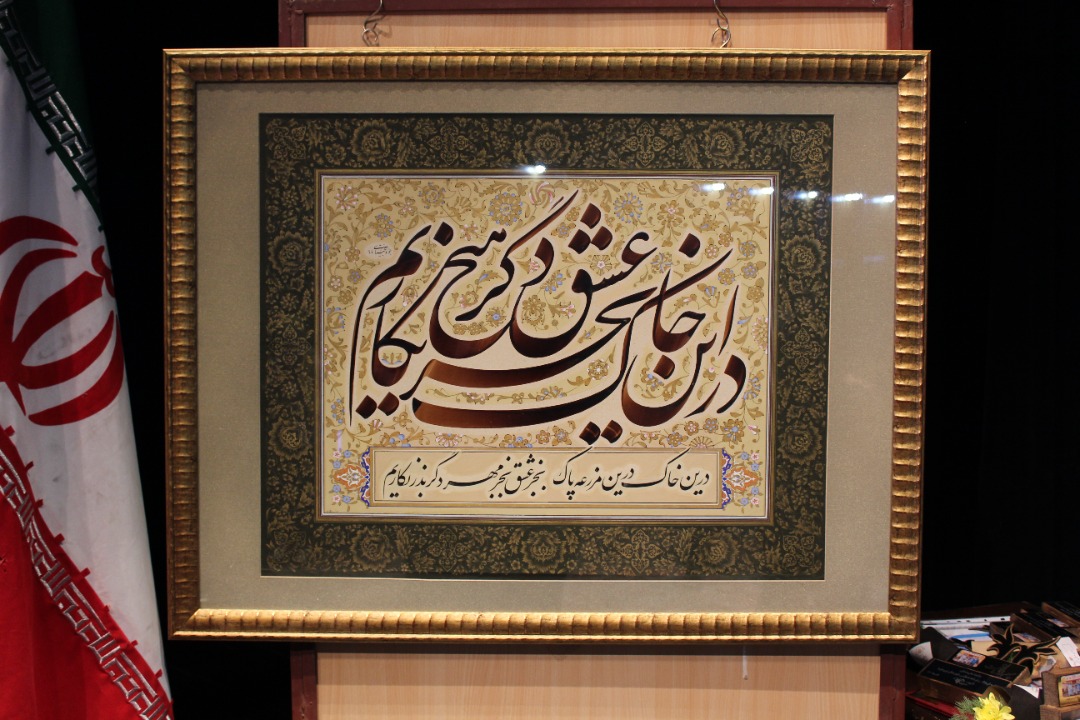 در این خاک بجز عشق دگر هیچ نکاریم
درین خاک درین مزرعه پاک بجز عشق بجز مهر دگر بذر نکاریم